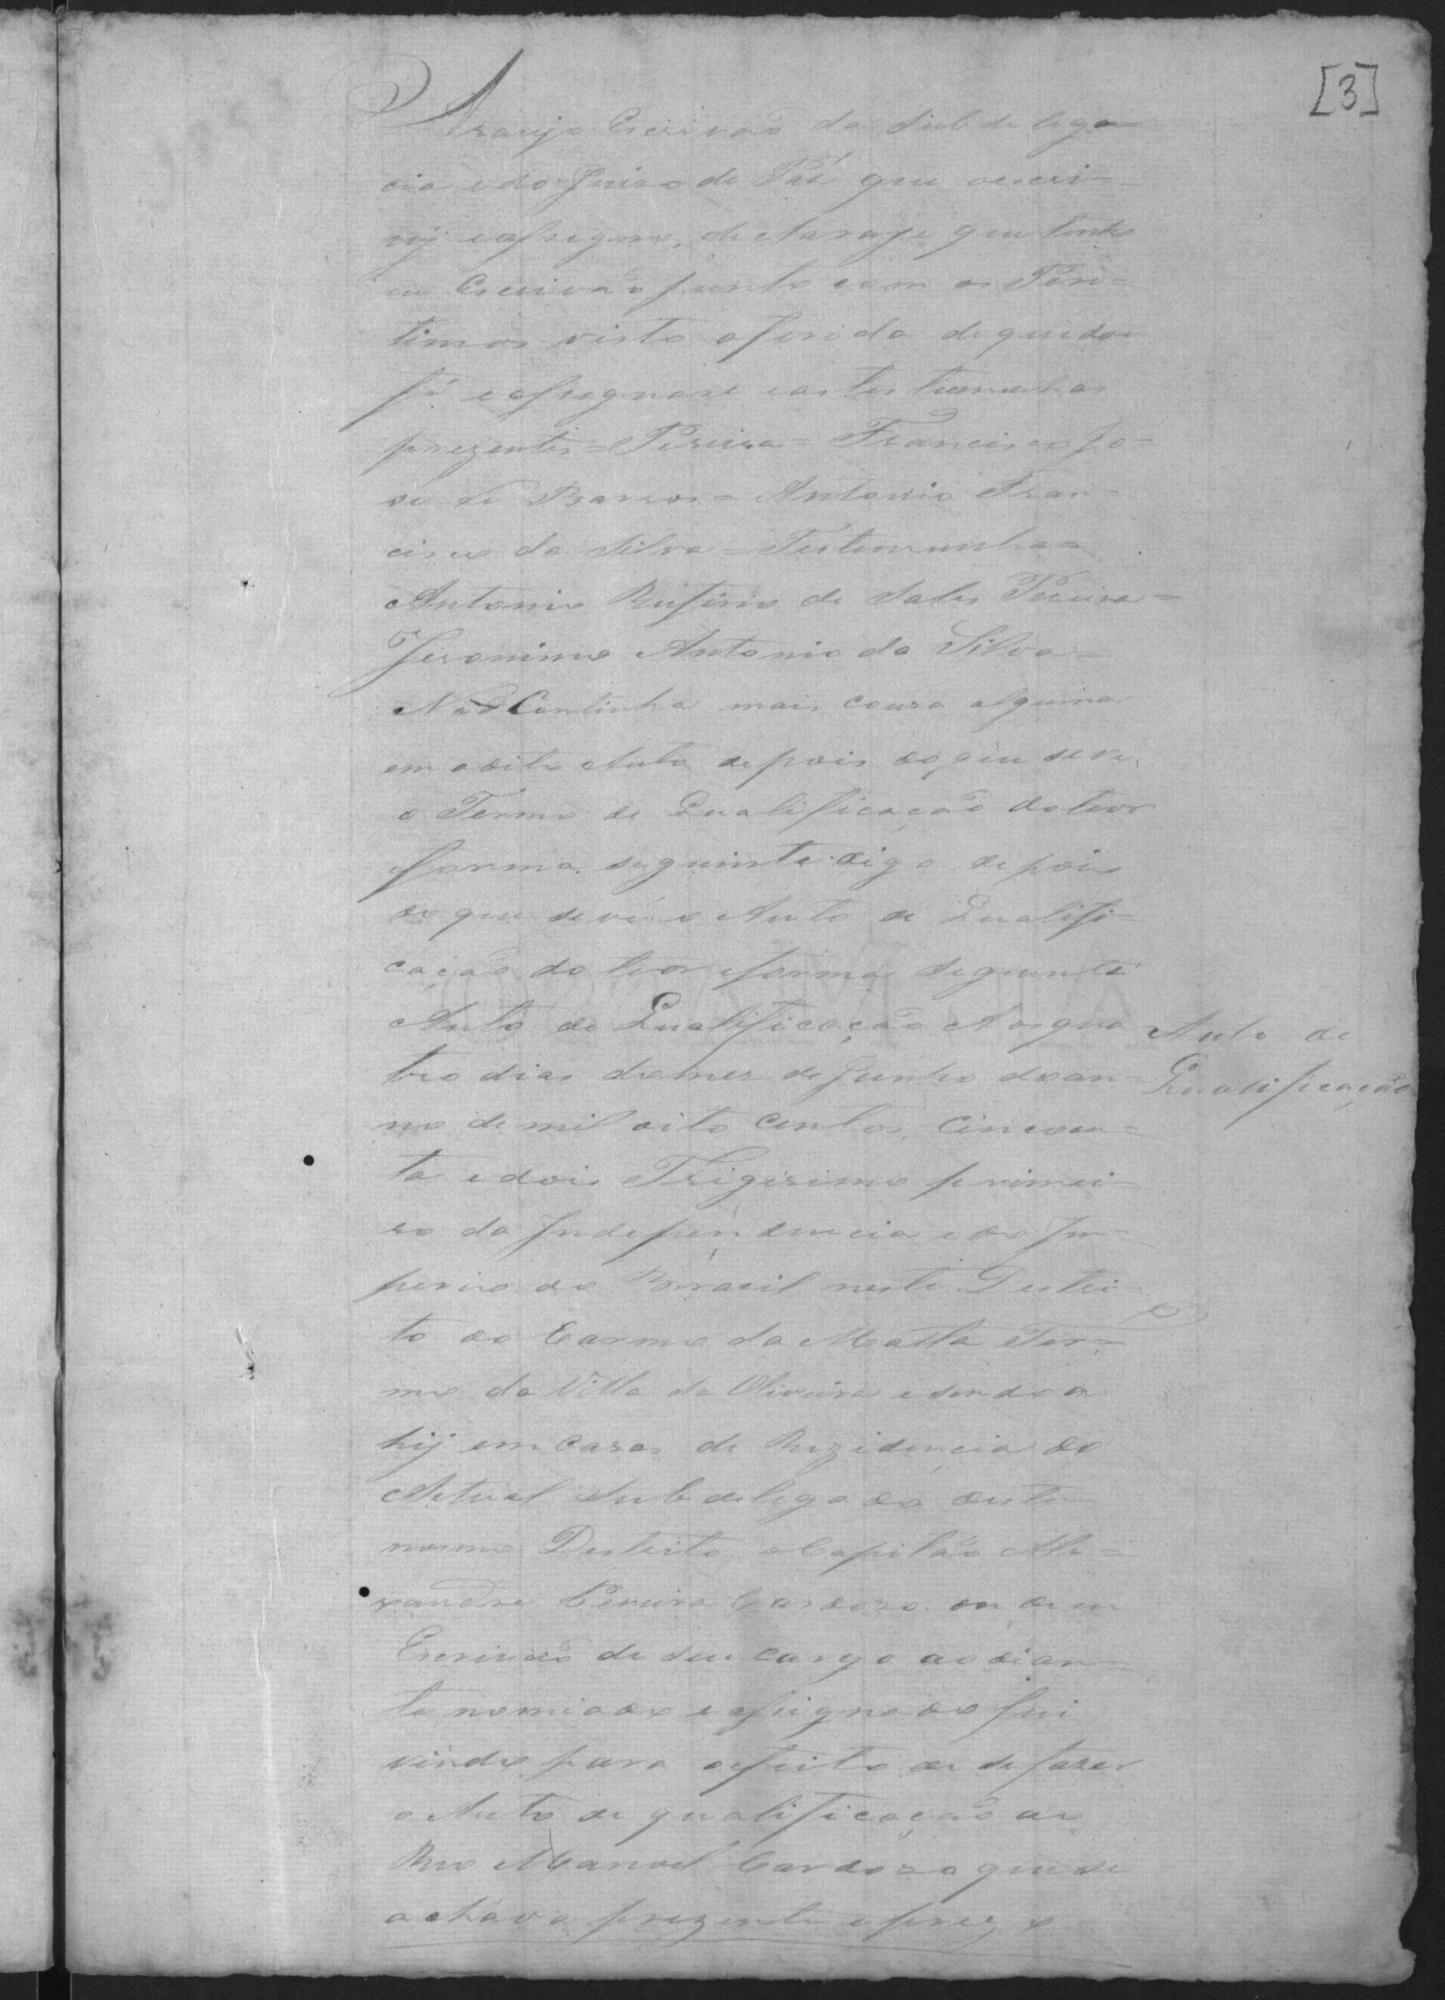 [3]
Araujo Escrivaõ da Subdelega-
cia edo Juizo de Paz que oescri-
vij eassigno, declaro que tenho
eu Escrivaõ junto com os Peri-
timos visto aferida dequedou
fé eassignase eastestemunhas
prezentes = Pereira = Francisco Jo-
se de Barros = Antonio Fran-
cisco da Silva = Testemunhas =
Antonio Rufino de Sales Pereira =
Jeronimo Antonio da Silva =
Naõ Continha mais couza alguma
em odito Auto depois do que seve,
o Termo de Qualificaçaõ doteor
eforma seguinte digo depois
do que sevé o Auto de Qualifi-
caçaõ do teor eforma seguinte
Auto de Qualificaçaõ Aosqua
tro dias domes de Junho doan-
no de mil oito Centos, Cincoen-
ta edois Trigesimo primei-
ro da Independencia edo Im-
perio do Brazil neste Destri-
to do Carmo da Matta Ter-
mo da Villa da Oliveira esendo a
hij em Cazas de Rezidencia do
Actual Subdelegado deste
mesmo Destrito oCapitão Ale-
xandre Pereira Cardozo onde eu
Escrivaõ de seu cargo aodian-
te nomiado eassignado fui
vindo para oefeito de sefazer
o Auto de qualificaçaõ ao
Reo Manoel Cardozo que se
achava prezente eprezo
Auto de
Qualificaçaõ